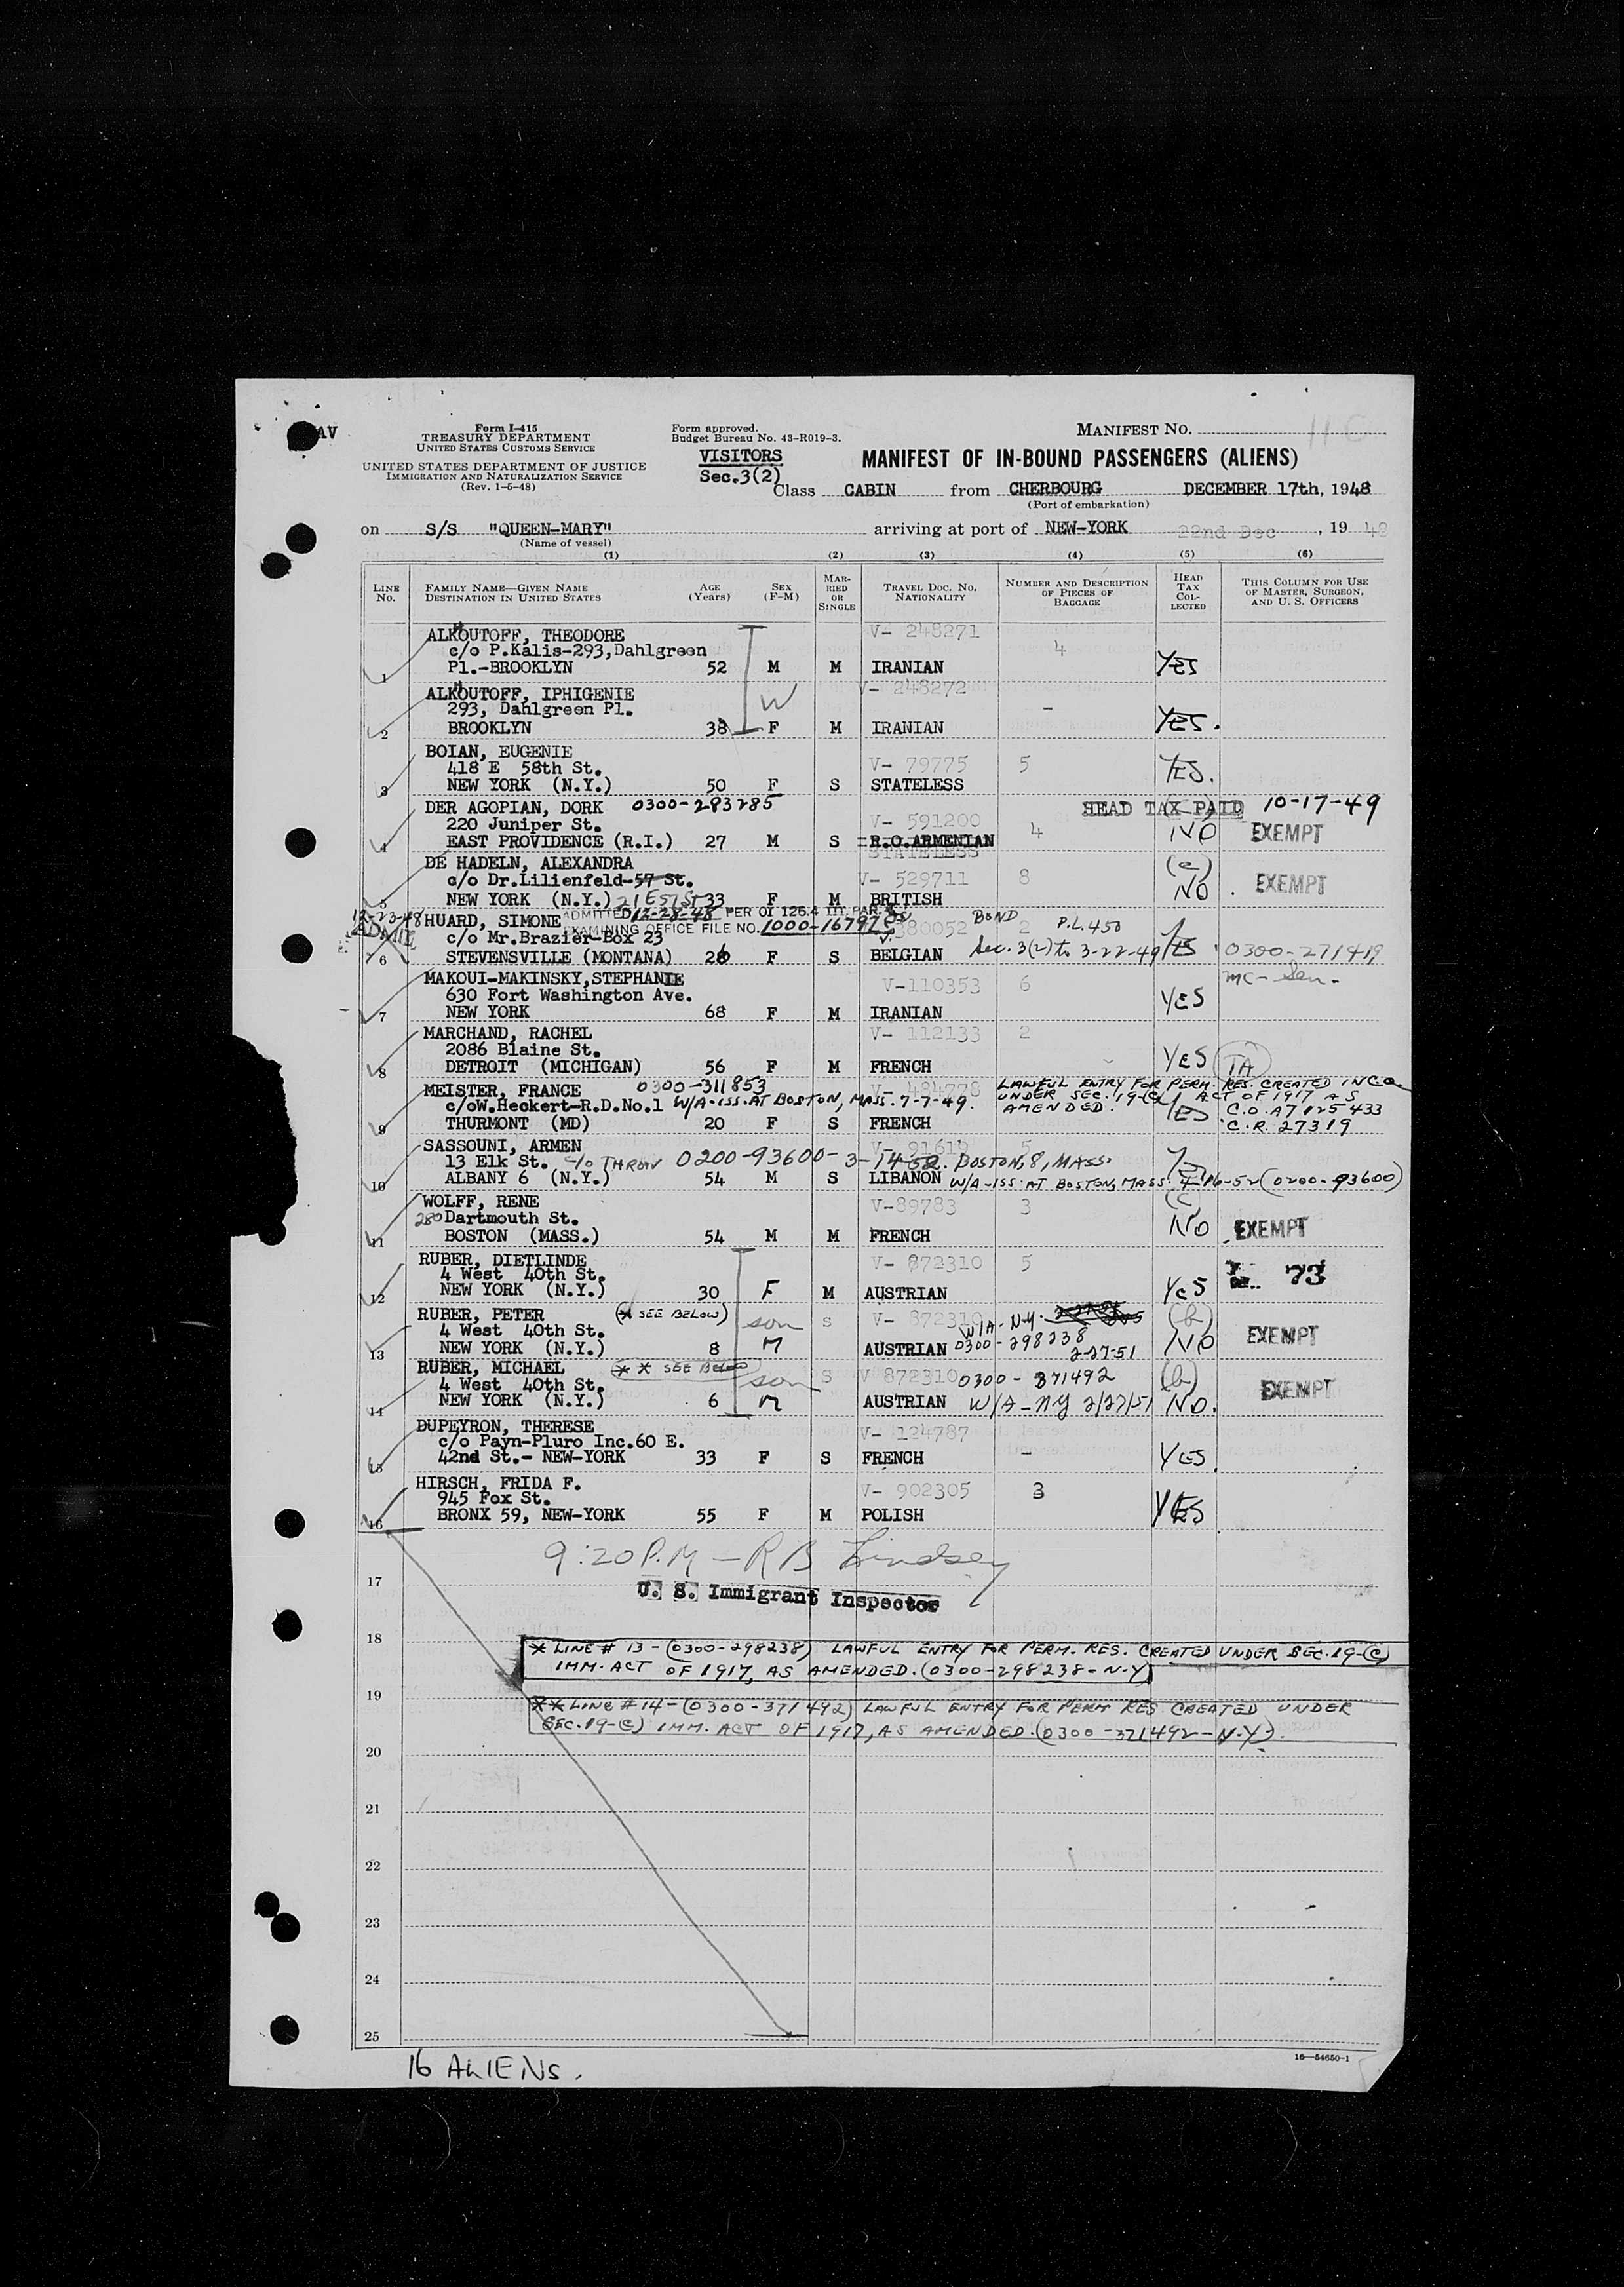 AV
Form I-415
TREASURY DEPARTMENT
UNITED STATES CUSTOMS SERVICE
UNITED STATES DEPARTMENT OF JUSTICE
IMMIGRATION AND NATURALIZATION SERVICE
(Rev. 1-5-48)
Form approved.
Budget Bureau No. 43-R019-3.
VISITORS
Sec.3(2)
MANIFEST NO. 11 C
MANIFEST OF IN-BOUND PASSENGERS (ALIENS)
Class CABIN from CHERBOURG DECEMBER 17th, 1948
(Port of embarkation)
on S/S "QUEEN-MARY" arriving at port of NEW-YORK 22nd Dec, 19 48
(Name of vessel)
(1) (2) (3) (4) (5) (6)
LINE No. FAMILY NAME—GIVEN NAME DESTINATION IN UNITED STATES AGE (Years) SEX (F-M) MARRIED OR SINGLE TRAVEL DOC. NO. NATIONALITY NUMBER AND DESCRIPTION OF PIECES OF BAGGAGE HEAD TAX COLLECTED THIS COLUMN FOR USE OF MASTER, SURGEON, AND U. S. OFFICERS
ALKOUTOFF, THEODORE V- 248271
c/o P.Kalis-293,Dahlgreen 4
1 Pl.-BROOKLYN 52 M M IRANIAN YES
ALKOUTOFF, IPHIGENIE V- 248272
293, Dahlgreen Pl. W -
2 BROOKLYN 38 F M IRANIAN YES.
BOIAN, EUGENIE
418 E 58th St. V- 79775 5
3 NEW YORK (N.Y.) 50 F S STATELESS YES.
DER AGOPIAN, DORK 0300-283285 HEAD TAX PAID 10-17-49
220 Juniper St. V- 591200 4 NO EXEMPT
4 EAST PROVIDENCE (R.I.) 27 M S R.O.ARMENIAN
STATELESS
DE HADELN, ALEXANDRA
c/o Dr.Lilienfeld-57 St. V- 529711 8 NO. EXEMPT
5 NEW YORK (N.Y.) 21 E 57 St 33 F M BRITISH
12-23-48 HUARD, SIMONE ADMITTED 12-28-48 PER OI 126.4 III, PAR.
EXAMINING OFFICE FILE NO. 1000-16797
c/o Mr.Brazier-Box 23 380052 2 BOND P.L. 450
6 STEVENSVILLE (MONTANA) 26 F S BELGIAN Sec. 3(2) to 3-22-49 YES 0300-271419
MAKOUI-MAKINSKY,STEPHANIE
630 Fort Washington Ave. V-110353 6
7 NEW YORK 68 F M IRANIAN YES
MARCHAND, RACHEL V- 112133 2
2086 Blaine St.
8 DETROIT (MICHIGAN) 56 F M FRENCH YES TA
MEISTER, FRANCE 0300-311853 V- 484778 LAWFUL ENTRY FOR PERM. RES. CREATED IN C.O.
c/oW.Heckert-R.D.No.1 W/A-ISS. AT BOSTON, MASS. 7-7-49. UNDER SEC. 19(C) ACT OF 1917 AS AMENDED.
9 THURMONT (MD) 20 F S FRENCH YES C.O. A7 125 433
C.R. 27319
SASSOUNI, ARMEN 5
13 Elk St. 0200-93600- BOSTON, 8, MASS.
10 ALBANY 6 (N.Y.) 54 M S LIBANON W/A-ISS. AT BOSTON, MASS. 4-16-52 (0200-93600)
WOLFF, RENE V-89783 3
280 Dartmouth St. NO EXEMPT
11 BOSTON (MASS.) 54 M M FRENCH
RUBER, DIETLINDE V- 872310 5
4 West 40th St. 73
12 NEW YORK (N.Y.) 30 F M AUSTRIAN YES
RUBER, PETER (* SEE BELOW) son S V- 872310 W/A - N.Y. (b)
4 West 40th St. 0300-298238 EXEMPT
13 NEW YORK (N.Y.) 8 M AUSTRIAN 2-27-51 NO
RUBER, MICHAEL ** SEE BELOW son S V 872310 0300 - 371492 (b)
4 West 40th St. EXEMPT
14 NEW YORK (N.Y.) 6 M AUSTRIAN W/A - NY 2/27/51 NO.
DUPEYRON, THERESE V- 124787
c/o Payn-Pluro Inc.60 E. -
15 42nd St.- NEW-YORK 33 F S FRENCH YES.
HIRSCH, FRIDA F. V- 902305 3
945 Fox St.
16 BRONX 59, NEW-YORK 55 F M POLISH YES
9:20 P.M - R B Lindsey
17 U. S. Immigrant Inspector
18 * LINE # 13 - (0300-298238) LAWFUL ENTRY FOR PERM. RES. CREATED UNDER SEC. 19-(C)
IMM. ACT OF 1917, AS AMENDED. (0300-298238-N-Y)
19 ** LINE # 14 - (0300-371492) LAWFUL ENTRY FOR PERM RES CREATED UNDER
SEC. 19-(C) IMM. ACT OF 1917, AS AMENDED. (0300-371492-N-Y).
20
21
22
23
24
25
16 ALIENS.
16—54650-1